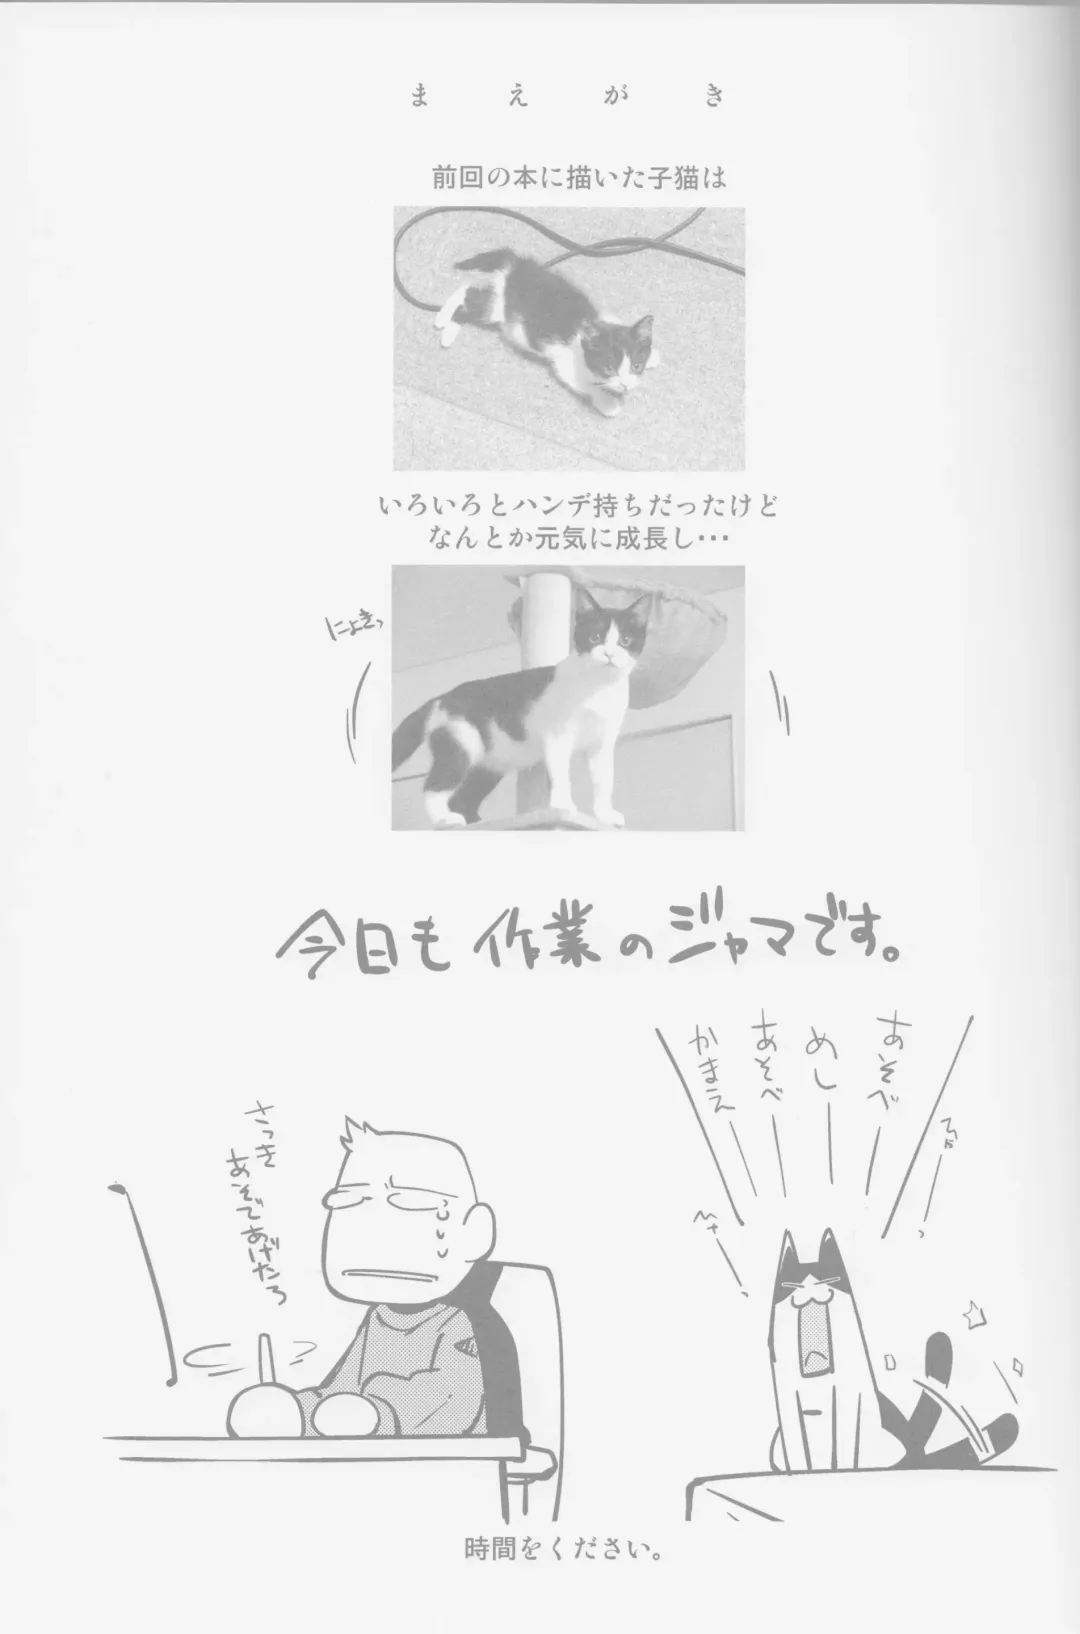 まえがき
前回の本に描いた子猫は
いろいろとハンデ持ちだったけど
なんとか元気に成長し…
にょきっ
今日も作業のジャマです。
あそべ
めし
あそべ
かまえ
さっき
あそんであげたろ
時間をください。